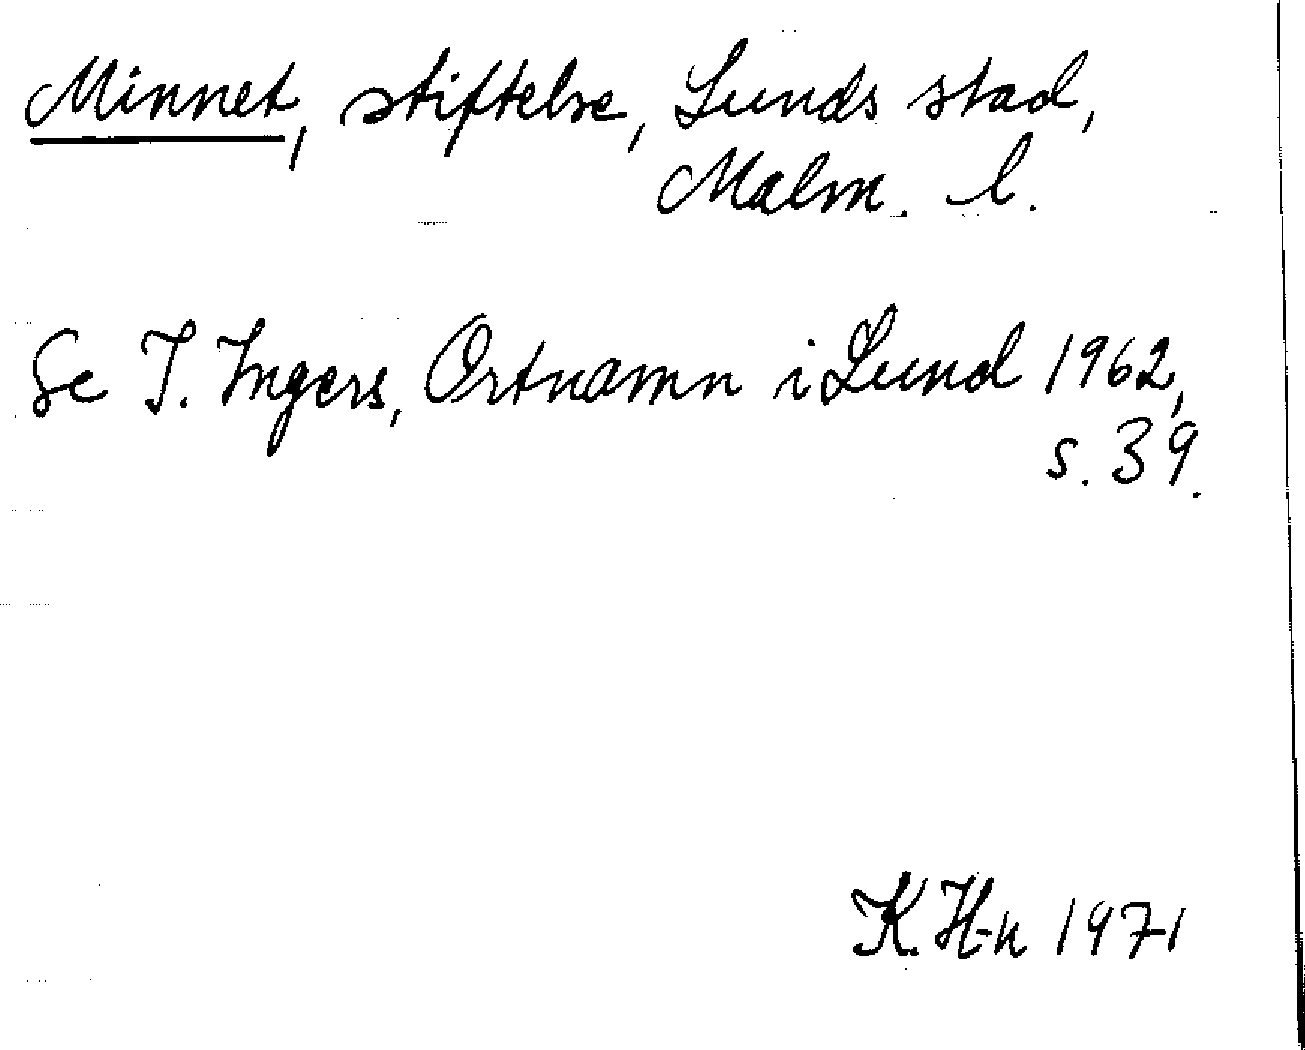 Minnet, stiftelse, Lunds stad,
Malm. l.
Se I. Ingers, Ortnamn i Lund 1962,
s. 39.
K. H-n 1971